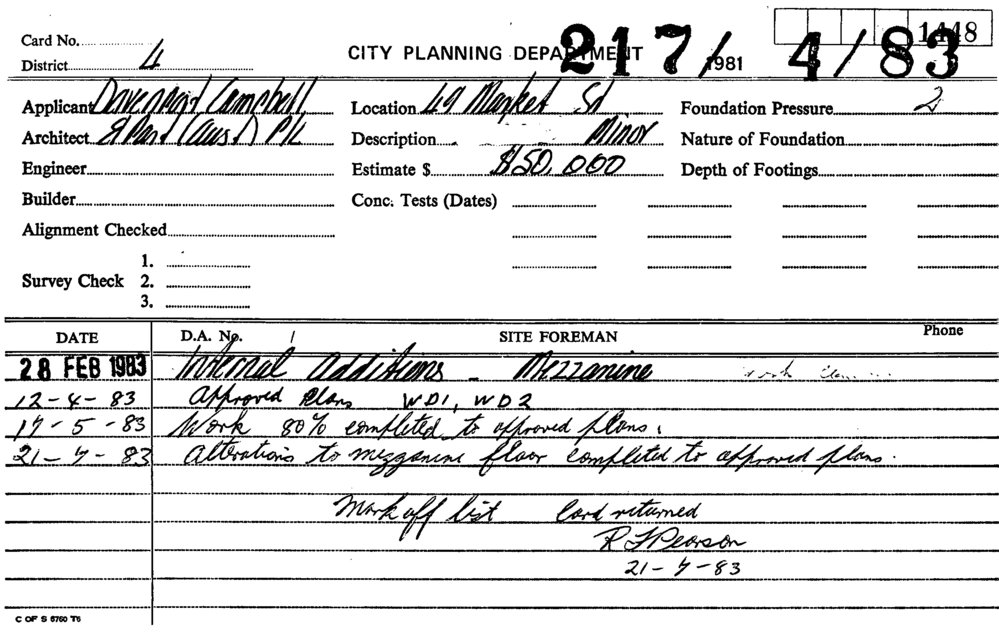 1448
Card No.
CITY PLANNING DEPARTMENT 217/1981 4/83
District 4
Applicant Davenport Campbell Location 49 Market St Foundation Pressure 2
Architect & Part (Aust) P/L Description Minor Nature of Foundation
Engineer Estimate $ $50,000 Depth of Footings
Builder Conc. Tests (Dates)
Alignment Checked
1.
Survey Check 2.
3.
DATE D.A. No. SITE FOREMAN Phone
28 FEB 1983 Internal Additions - Mezzanine
12-4-83 Approved Plans WD1, WD2
17-5-83 Work 80% completed to approved plans.
21-7-83 Alterations to mezzanine floor completed to approved plans.
Mark off list Card returned
R F Pearson
21-7-83
C OF S 5760 T6